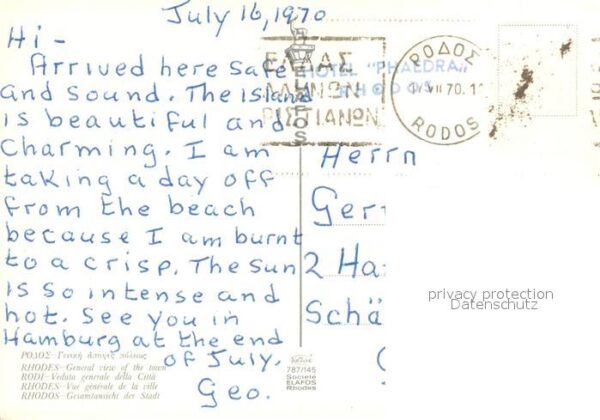 July 16, 1970
Hi -
Arrived here safe
and sound. The island
is beautiful and
charming. I am
taking a day off
from the beach
because I am burnt
to a crisp. The sun
is so intense and
hot. See you in
Hamburg at the end
of July.
Geo.
ΕΛΛΑΣ
HOTEL "PHAEDRA"
RHODOS
ΡΟΔΟΣ
VII 70
RODOS
Herrn
Ger
2 Ha
Schä
privacy protection
Datenschutz
ΡΟΔΟΣ-Γενική άποψις πόλεως
RHODES-General view of the town
RODI-Veduta generale della Città
RHODES-Vue générale de la ville
RHODOS-Gesamtansicht der Stadt
787/145
Société
ELAFOS
Rhodes